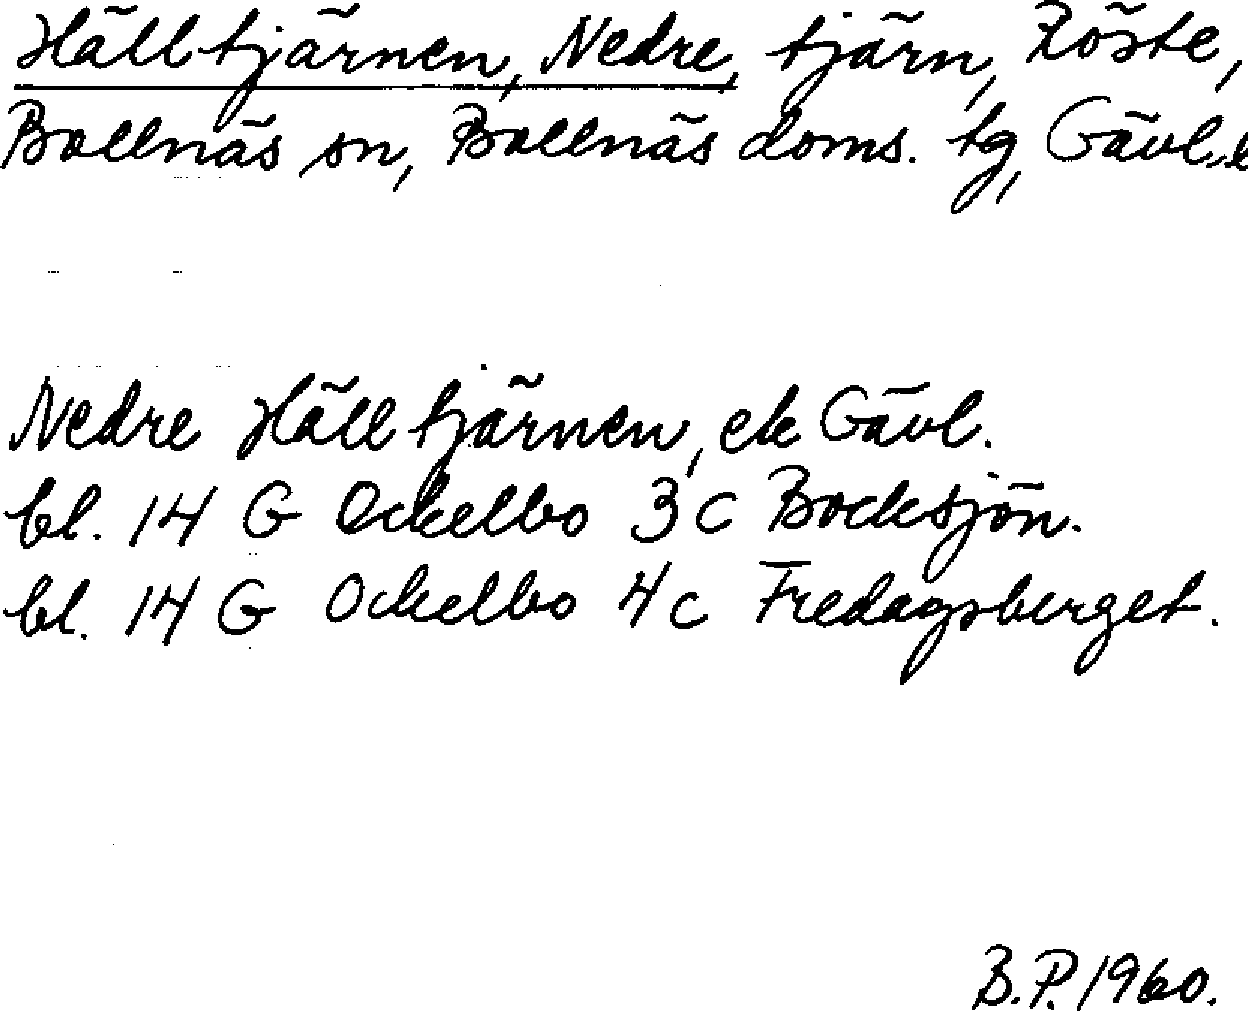 Hälltjärnen, Nedre, tjärn, Röste,
Bollnäs sn, Bollnäs doms. tg, Gävl. l
Nedre Hälltjärnen, ek Gävl.
bl. 14 G Ockelbo 3 c Bocksjön.
bl. 14 G Ockelbo 4 c Fredagsberget.
B.P. 1960.